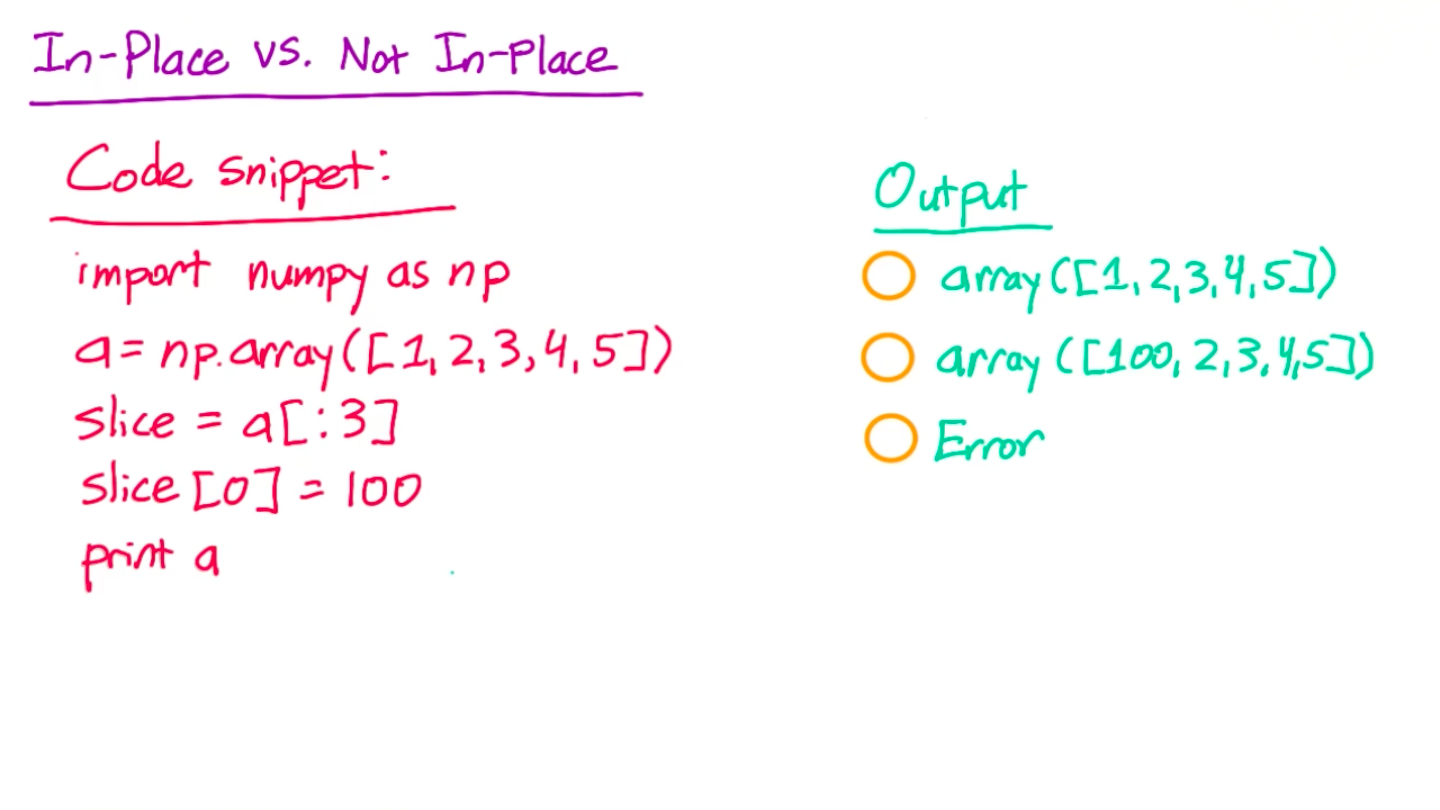 In-Place vs. Not In-Place
Code snippet:
import numpy as np
a = np.array([1, 2, 3, 4, 5])
slice = a[:3]
slice[0] = 100
print a
Output
array([1, 2, 3, 4, 5])
array([100, 2, 3, 4, 5])
Error